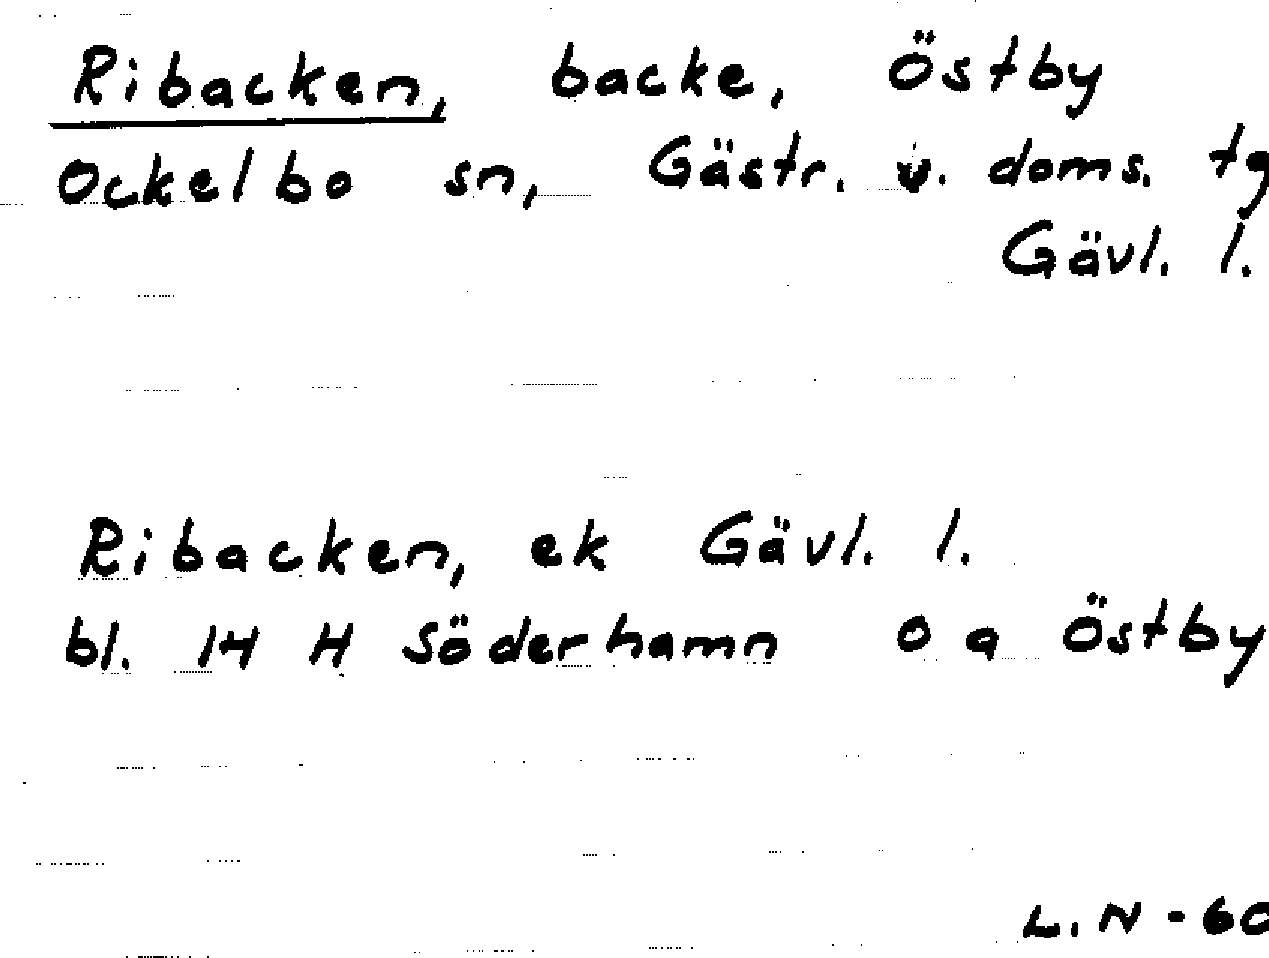 Ribacken, backe, Östby
Ockelbo sn, Gästr. v. doms. tg
Gävl. l.
Ribacken, ek Gävl. l.
bl. 14 H Söderhamn o a Östby
L. N - 60